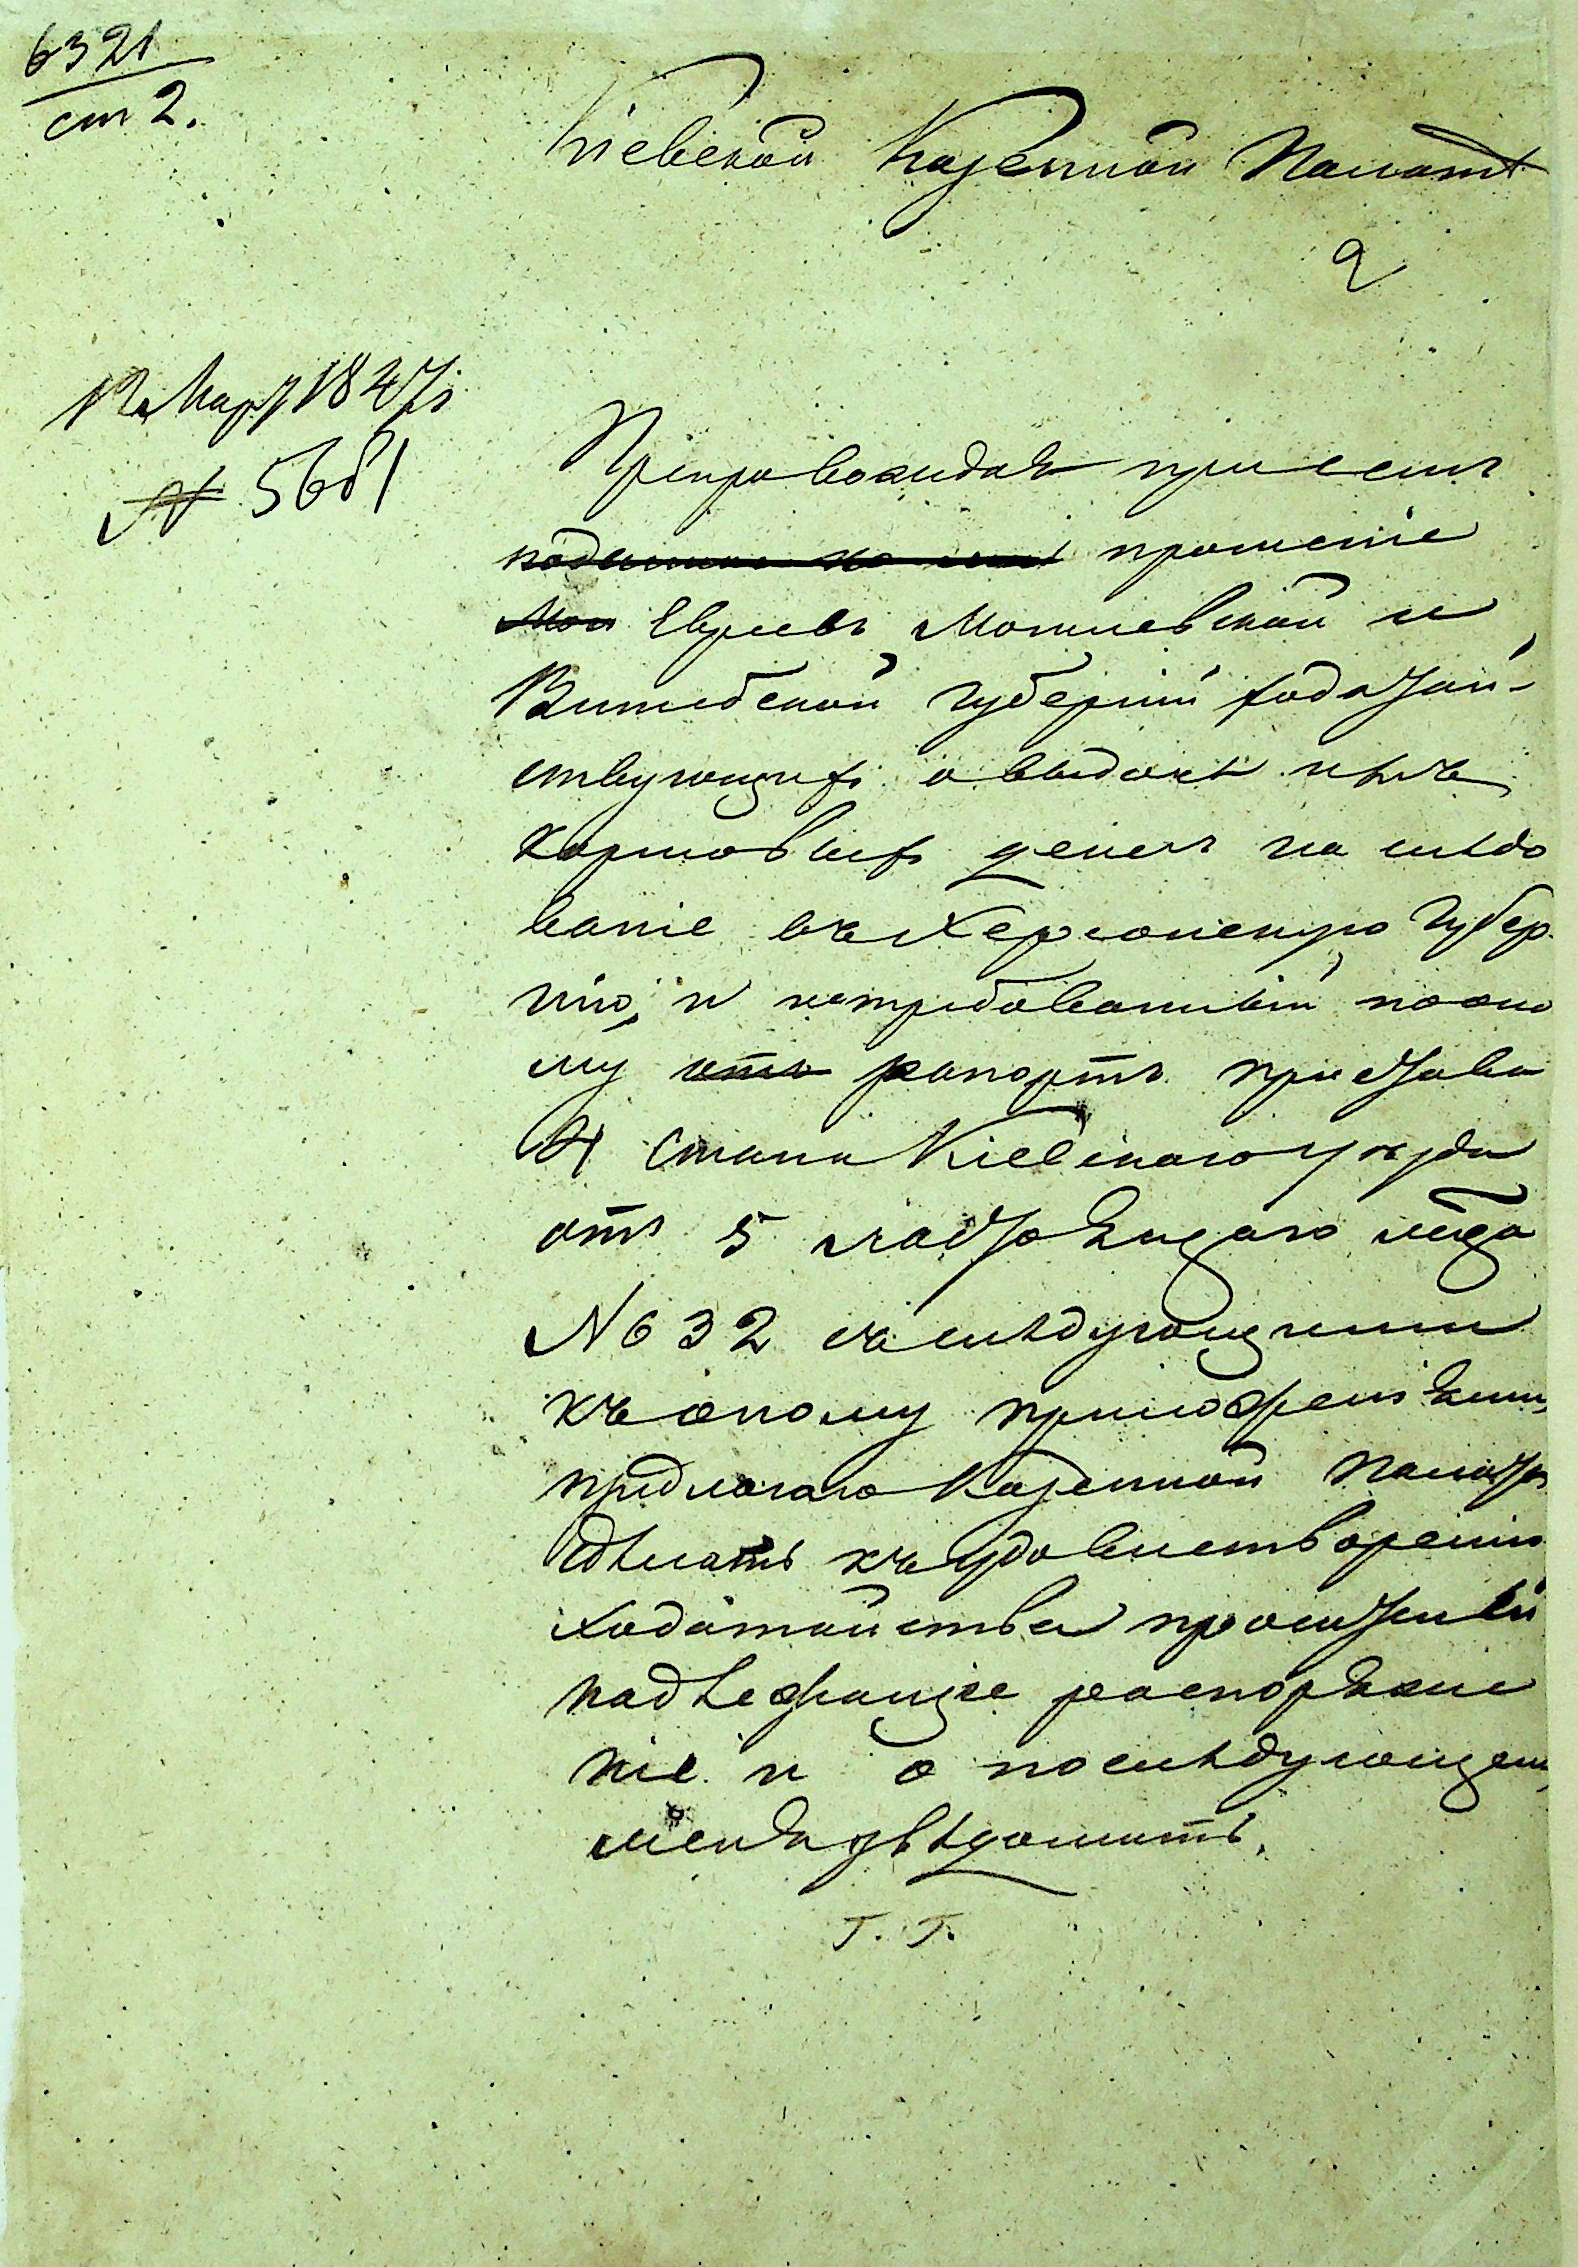 6321
ст 2.
Кіевской Казенной Палатѣ
2
12 Марта 1847 г.
№ 5681
Препровождая при семъ
прошеніе
Евреевъ, Могилевской и
Витебской губерній ходатай-
ствующихъ о выдачѣ имъ
кормовыхъ денегъ на слѣдо
ваніе въ Херсонскую Губер
нію, и истребованный по оно
му рапортъ пристава
4 стана Кіевскаго уѣзда
отъ 5 настоящаго м̃ца
№ 632 съ слѣдующими
къ оному приложеніями,
предлагаю Казенной Палатѣ
сдѣлать къ удовлетворенію
ходатайства просителей
надлежащее распоряже
ніе и о послѣдующемъ
меня увѣдомить.
Г. Г.